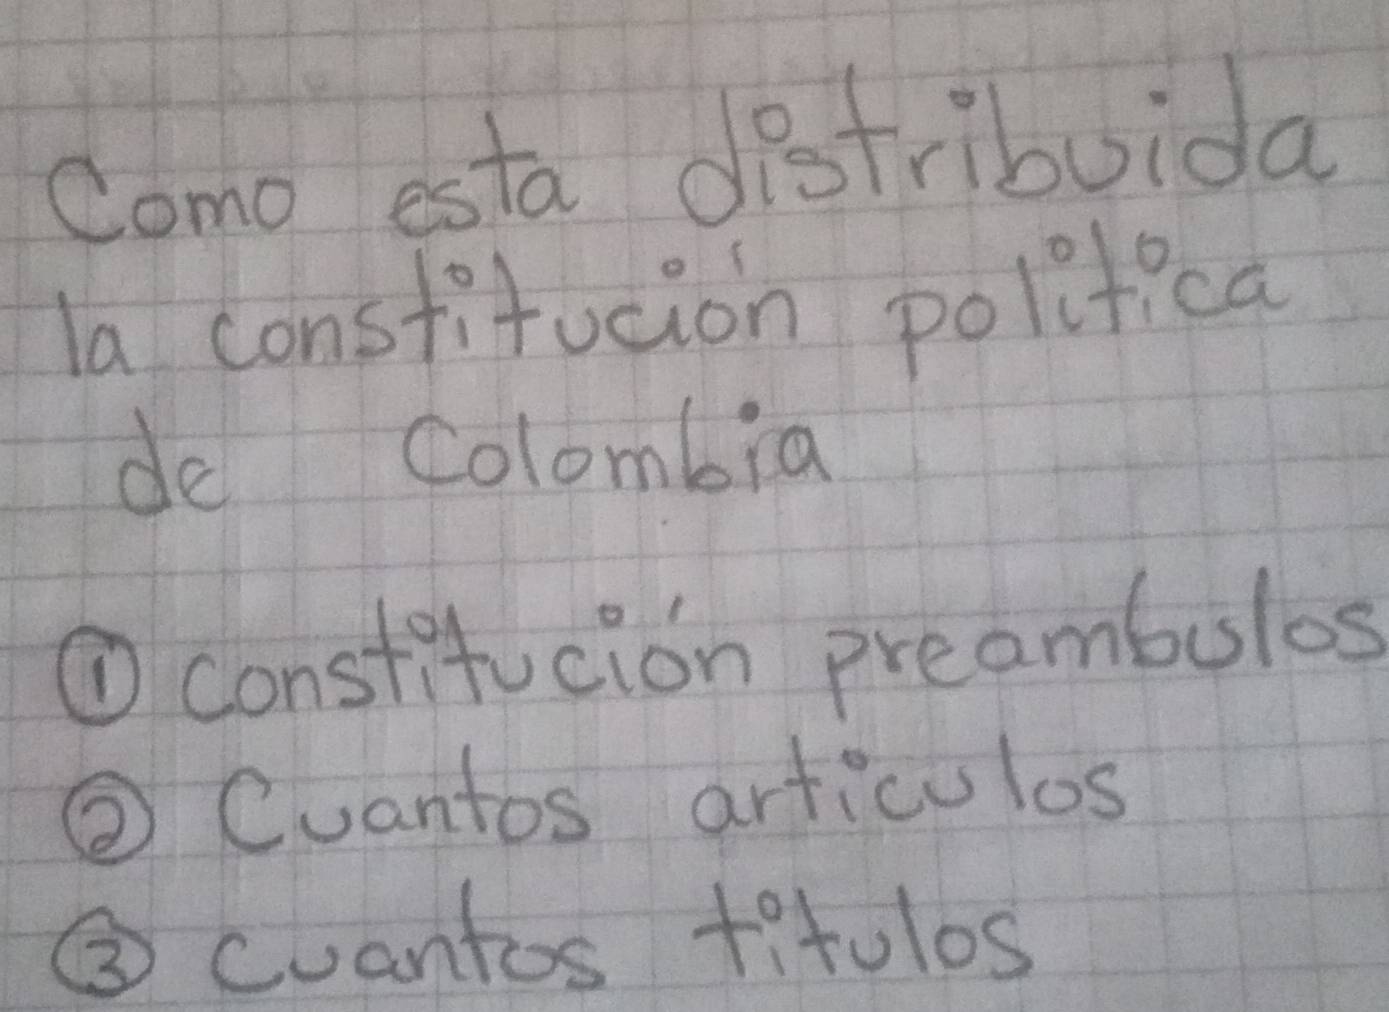 Como esta distribuida
la constitución politica
de Colombia
① constitución preambulos
② Cuantos articulos
③ cuantos titulos